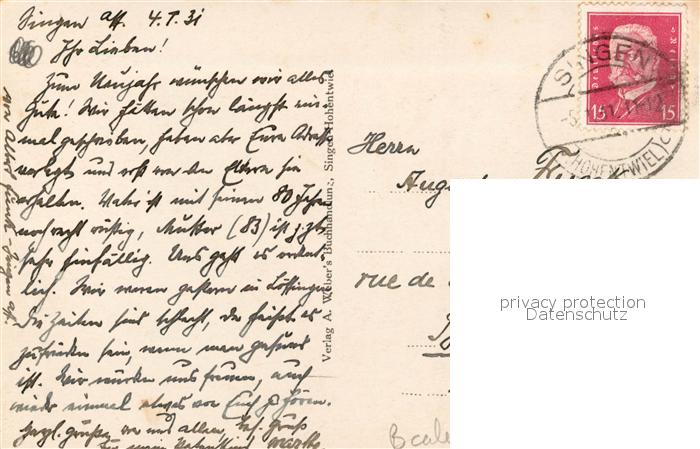 Singen a/H. 4.I.31
Ihr Lieben!
Zum Neujahr wünschen wir alles
Gute! Wir hätten schon längst ein-
mal geschrieben, haben aber Eure Adresse
verlegt und erst von den Eltern sie
erhalten. Vater ist mit seinen 80 Jahren
noch recht rüstig, Mutter (83) ist z. Zt.
sehr hinfällig. Uns geht es ordent-
lich. Wir waren gestern in Löffingen.
Die Zeiten sind schlecht, da heißt es
zufrieden sein, wenn man gesund
ist. Wir würden uns freuen, auch
wieder einmal etwas von Euch zu hören.
Herzl. Grüße von uns allen, bes. Gruß
Verlag A. Weber's Buchhandlung, Singen-Hohentwiel
Herrn
rue de
SINGEN
(HOHENTWIEL)
15 15
privacy protection
Datenschutz